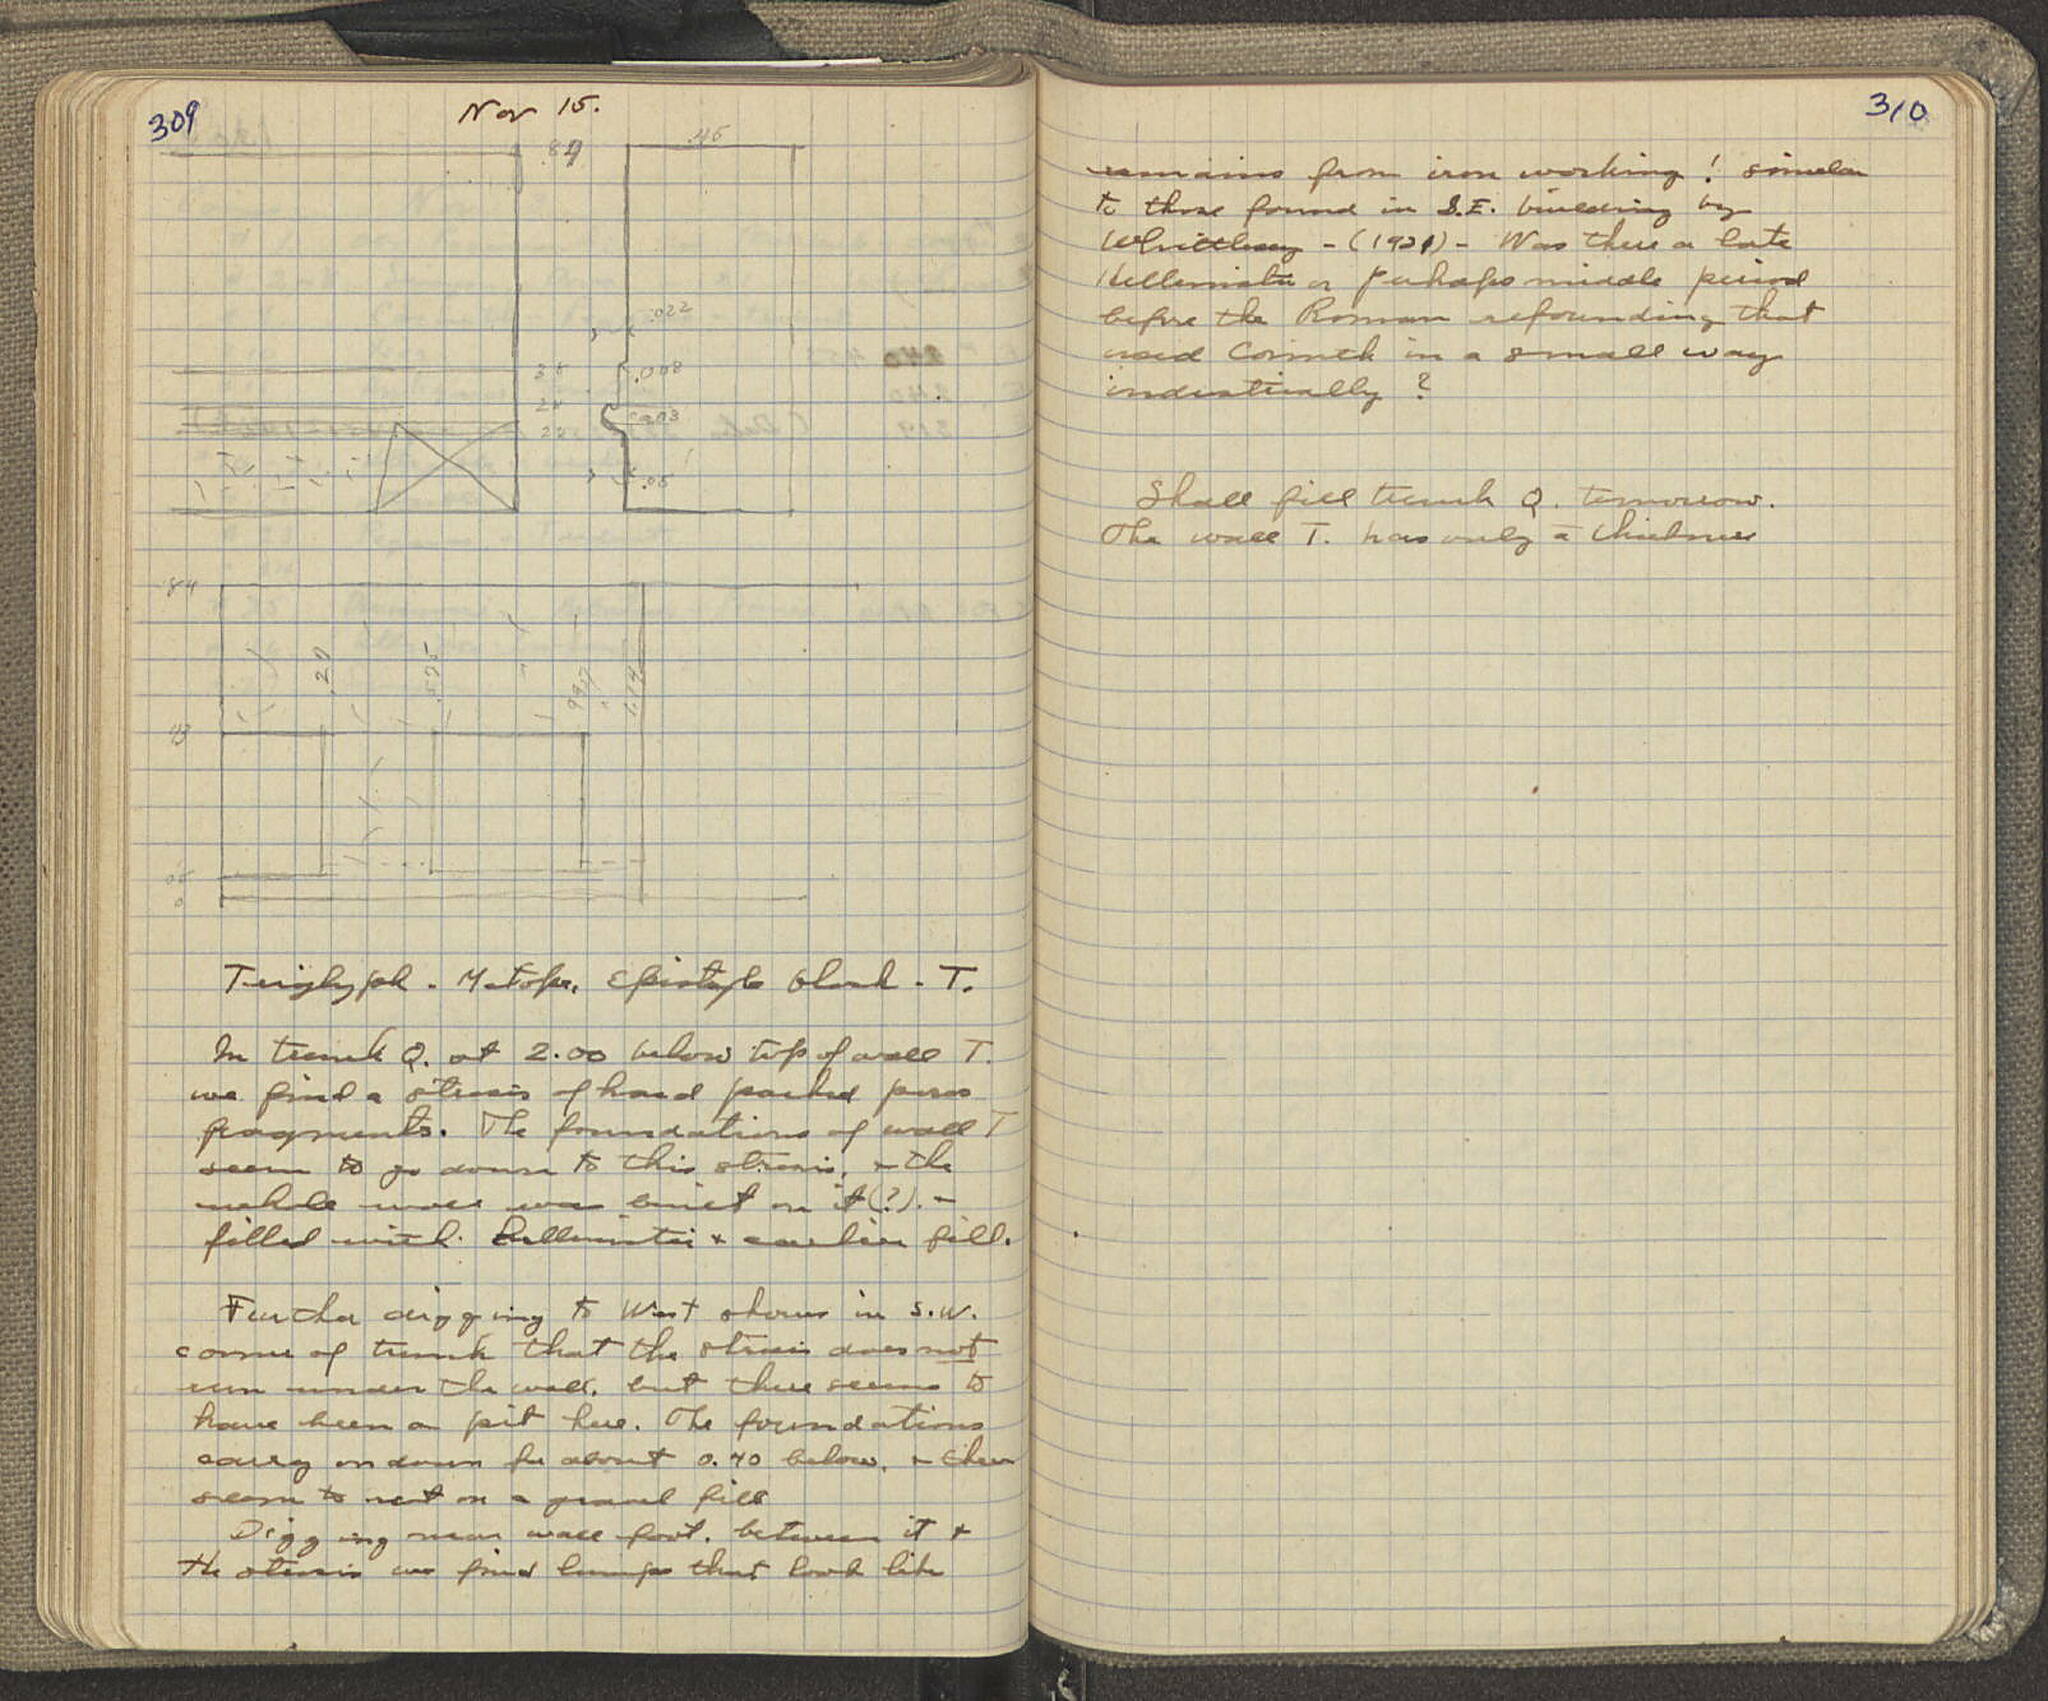 309
Nov 15.
.46
.022
35
.008
24
22
.05
.84
.29
.575
1.14
05
0
Triglyph - Metope, Epistyle block - T.
In trench Q. at 2.00 below top of wall T.
we find a strosis of hard packed poros
fragments. The foundations of wall T
seem to go down to this strosis, + the
whole wall was built on it (?). -
filled with Hellenistic + earlier fill.
Further digging to West shows in S.W.
corner of trench that the strosis does not
run under the wall, but there seems to
have been a pit here. The foundations
carry on down for about 0.40 below, + then
seem to rest on a gravel fill
Digging near wall foot, between it +
the strosis we find lumps that look like
310
remains from iron working! similar
to those found in S.E. building by
Whittlesey - (1921) - Was there a late
Hellenistic or perhaps middle period
before the Roman refounding that
used Corinth in a small way
industrially?
Shall fill trench Q. tomorrow.
The wall T. has only a thickness